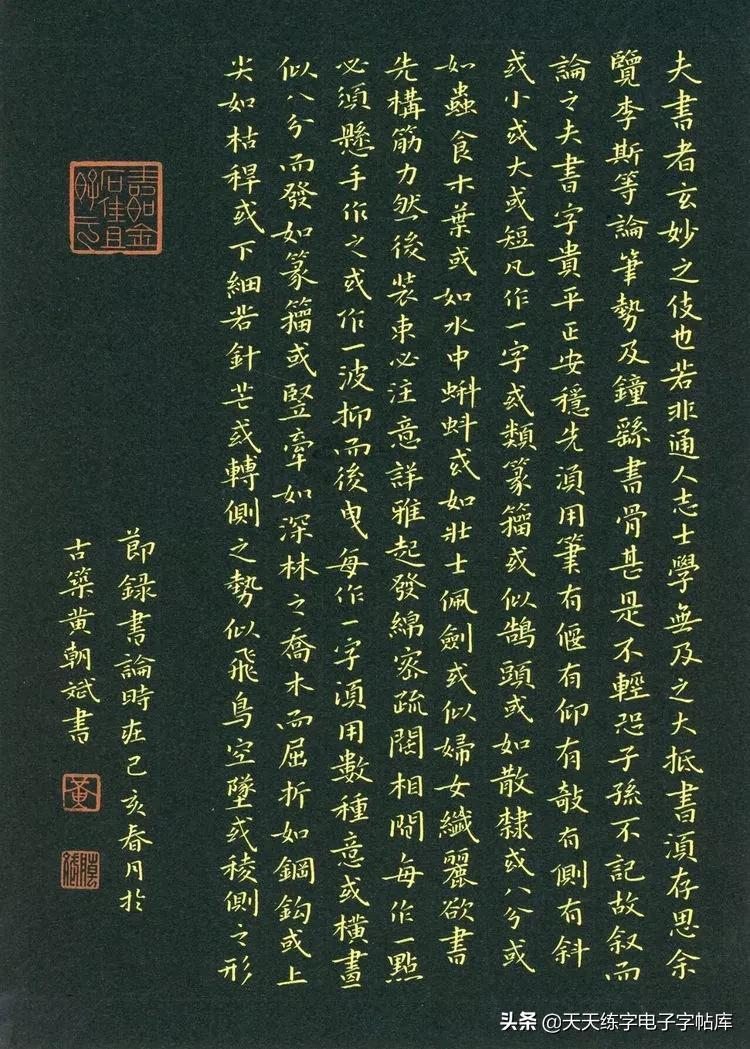 夫書者玄妙之伎也若非通人志士學無及之大抵書須存思余
覽李斯等論筆勢及鐘繇書骨甚是不輕恐子孫不記故叙而
論之夫書字貴平正安穩先須用筆有偃有仰有敧有側有斜
或小或大或短凡作一字或類篆籀或似鵠頭或如散隸或八分或
如蟲食木葉或如水中蝌蚪或如壯士佩劍或似婦女纖麗欲書
先構筋力然後裝束必注意詳雅起發綿密疏闊相間每作一點
必須懸手作之或作一波抑而後曳每作一字須用數種意或橫畫
似八分而發如篆籀或豎牽如深林之喬木而屈折如鋼鈎或上
尖如枯稈或下細若針芒或轉側之勢似飛鳥空墜或稜側之形
節錄書論時在己亥春月於
古築黄朝斌書
黃
頭条 @天天练字电子字帖库